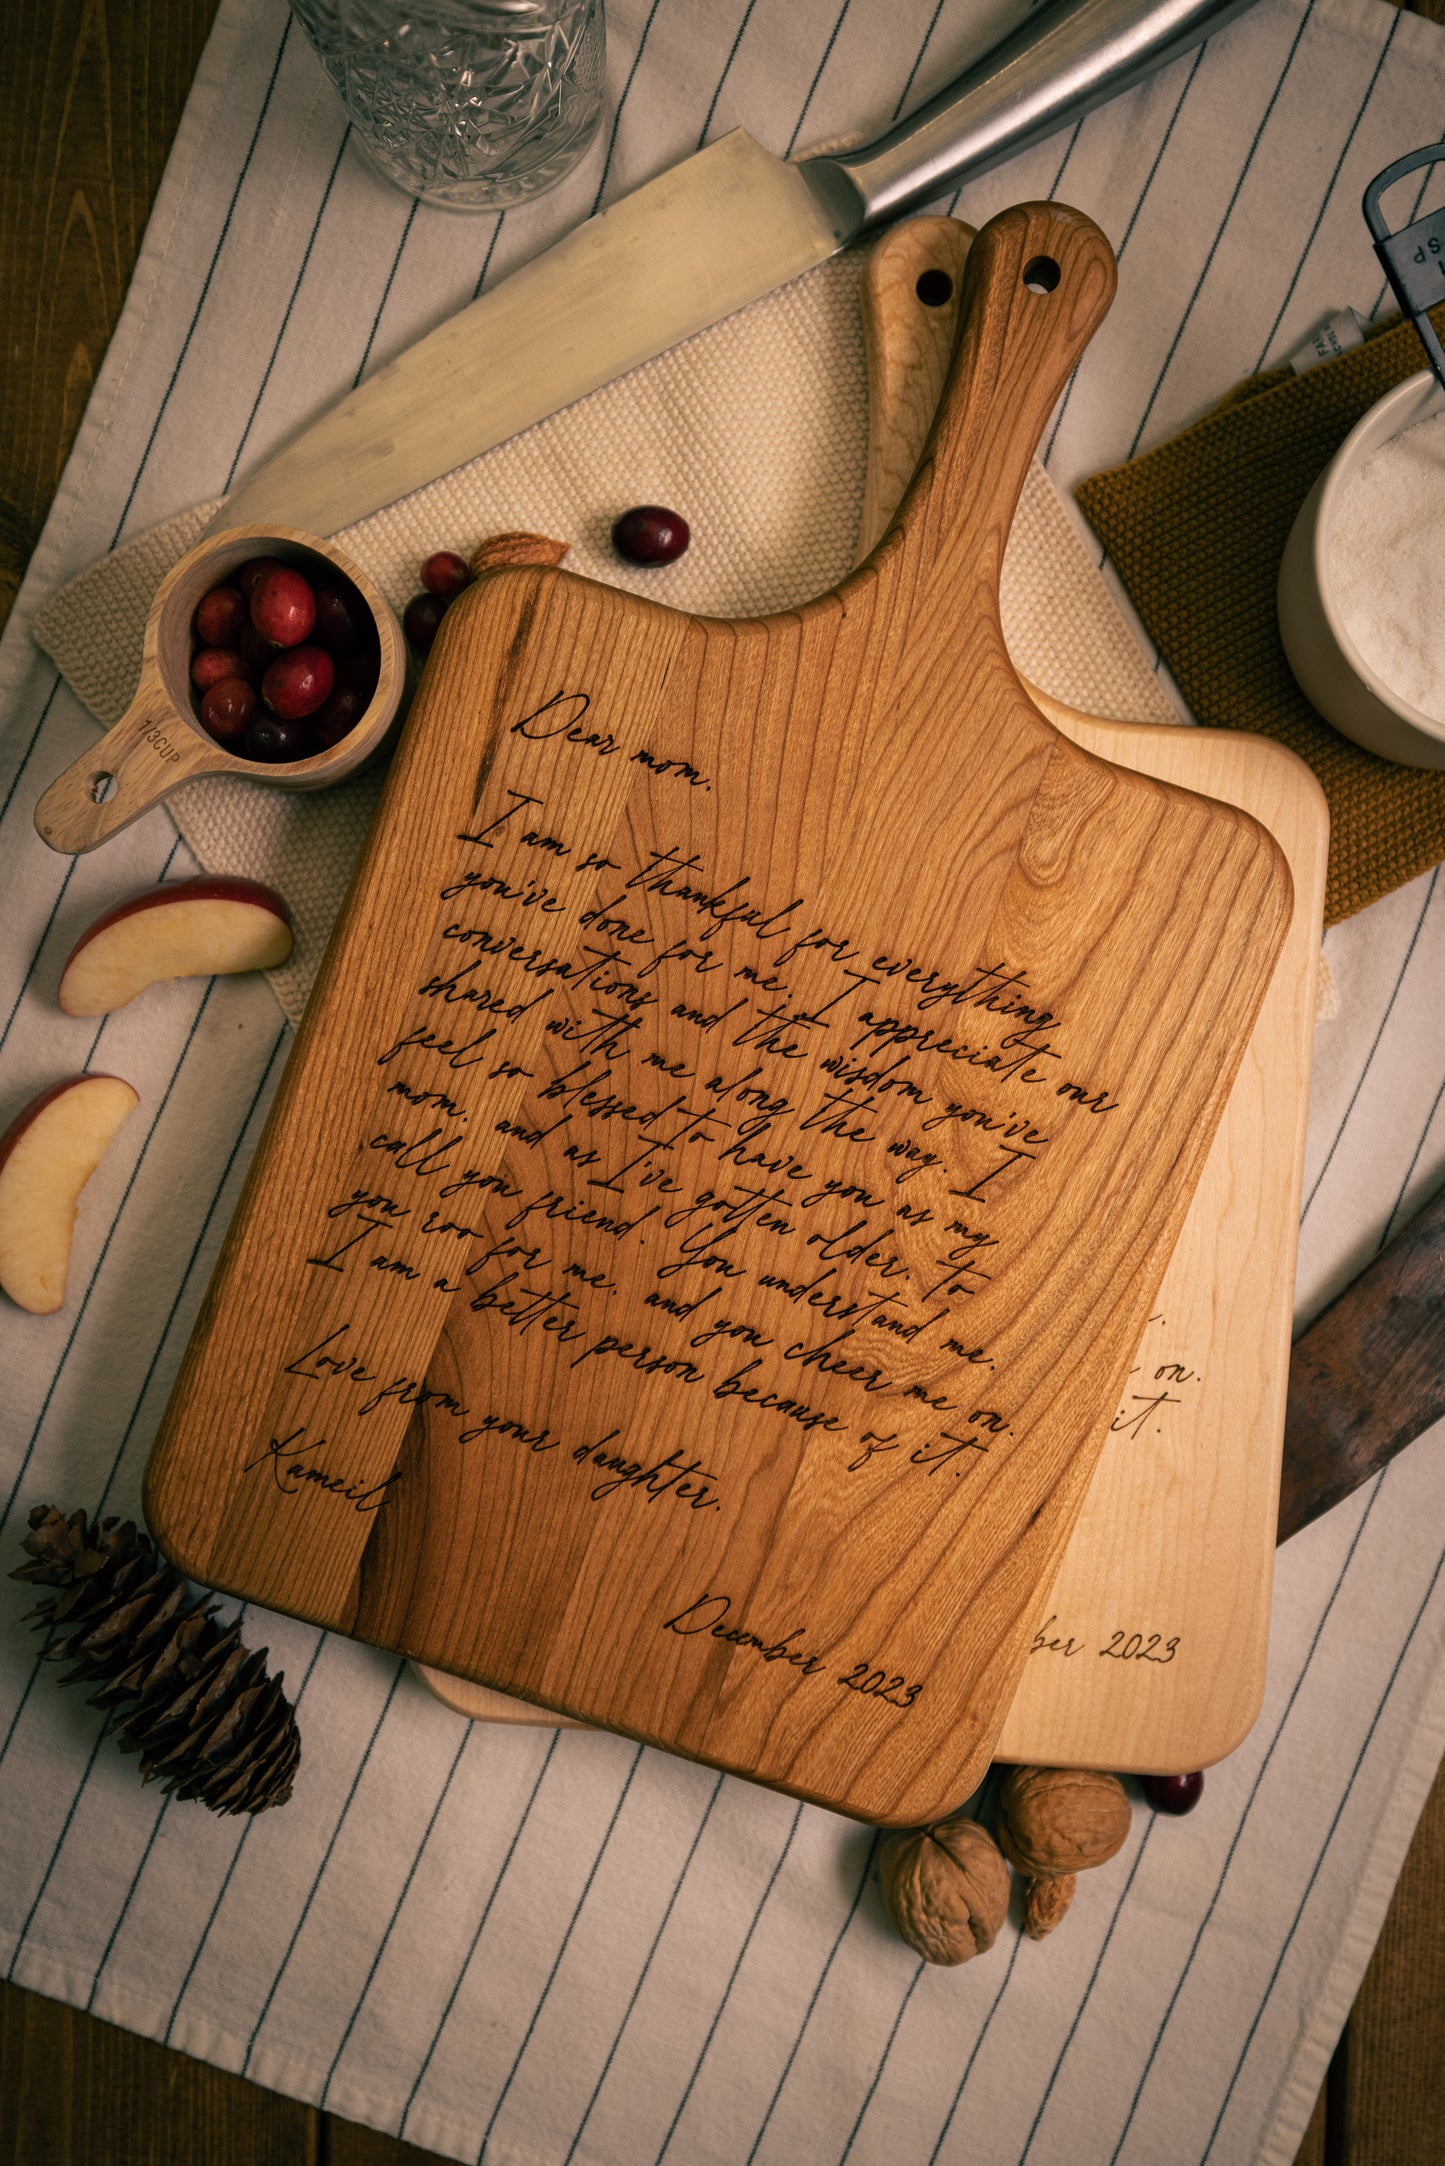 Dear mom,
I am so thankful for everything
you've done for me. I appreciate our
conversations and the wisdom you've
shared with me along the way. I
feel so blessed to have you as my
mom, and as I've gotten older, to
call you friend. You understand me,
you roo for me, and you cheer me on.
I am a better person because of it.
Love from your daughter,
Kameil
December 2023
on.
it.
ber 2023
1/3CUP
SP